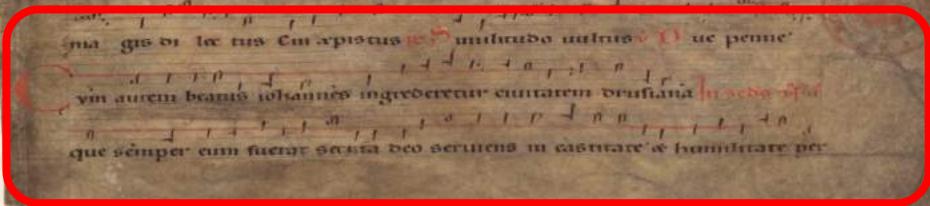 ma gis di lec tus Cui xpistus Similitudo uultus V Due penne
Cvm autem beatus iohannes ingrederetur ciuitatem drusiana In
que semper eum fuerat secuta deo seruiens in castitate & humilitate per